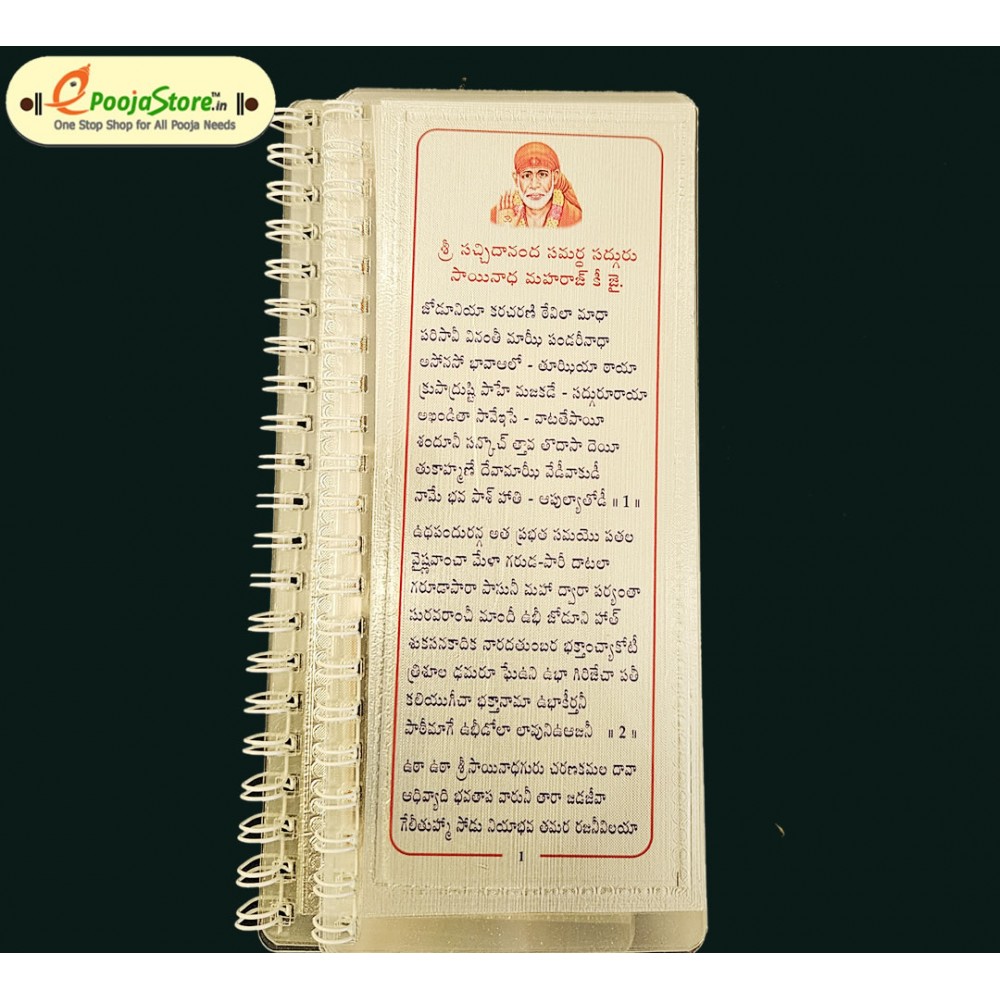 ePoojaStore.in™
One Stop Shop for All Pooja Needs
శ్రీ సచ్చిదానంద సమర్ధ సద్గురు
సాయినాధ మహరాజ్ కీ జై.
జోడూనియా కరచరణి ఠేవిలా మాధా
పరిసావీ వినంతీ మాఝీ పండరీనాధా
అసోనసో భావాఆలో - తూఝియా ఠాయా
క్రుపాద్రుష్టి పాహే మజకడే - సద్గురూరాయా
అఖండితా సావేఇసే - వాటతేపాయీ
శందూనీ సన్కొచ్ త్తావ తొదాసా దెయీ
తుకాహ్మణే దేవామాఝీ వేడీవాకుడీ
నామే భవ పాశ్ హాతి - ఆపుల్యాతోడీ ॥ 1 ॥
ఉథపందురన్గ అత ప్రభత సమయొ పతల
వైష్ణవాంచా మేళా గరుడ-పారీ దాటలా
గరూడాపారా పాసునీ మహా ద్వారా పర్యంతా
సురవరాంచీ మాందీ ఉభీ జోడూని హాత్
శుకసనకాదిక నారదతుంబర భక్తాంచ్యాకోటీ
త్రిశూల ధమరూ ఘేఉని ఉభా గిరిజేచా పతీ
కలియుగీచా భక్తానామా ఉభాకీర్తనీ
పాఠీమాగే ఉభీడోలా లావునిఉఆజనీ ॥ 2 ॥
ఉఠా ఉఠా శ్రీ సాయినాధగురు చరణకమల దావా
ఆధివ్యాది భవతాప వారునీ తారా జడజీవా
గేలీతుహ్మా సోడు నియాభవ తమర రజనీవిలయా
1